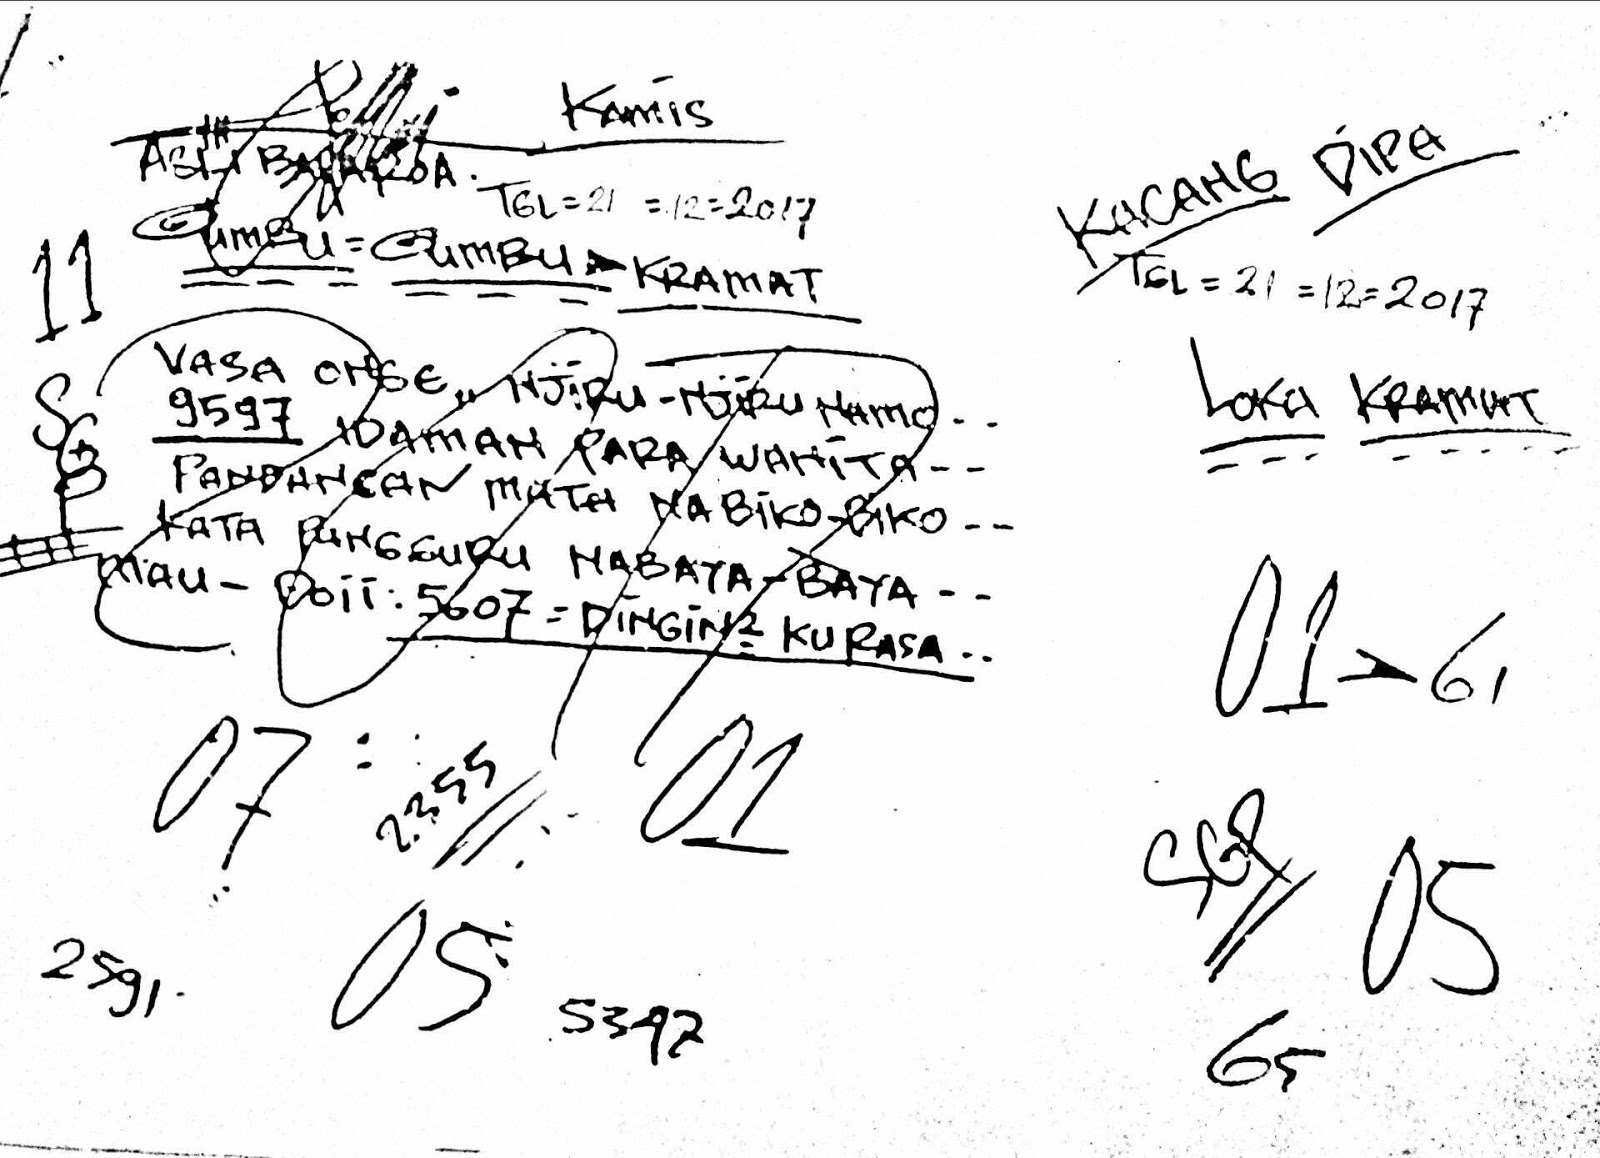 Kamis
ASLI
TGL = 21 = 12 = 2017
GUMBU = GUMBU KRAMAT
11
VASA ONGE,, NJIRU-NJIRU NAMO...
9597 IDAMAN PARA WANITA---
PANDANGAN MATA NABIKO-BIKO---
KATA PUNGGURU NABAYA-BAYA---
MAU - Doii: 5607 = DINGIN2 KURASA...
07
2355
01
05
2591.
5397
KACANG DIPA
TGL = 21 = 12 = 2017
LOKA KRAMAT
01 61
05
65